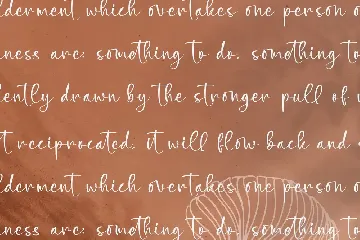 lderment which overtakes one person o
ness are: something to do, something to
ently drawn by the stronger pull of
t reciprocated, it will flow back and
lderment which overtakes one person o
ness are: something to do, something to